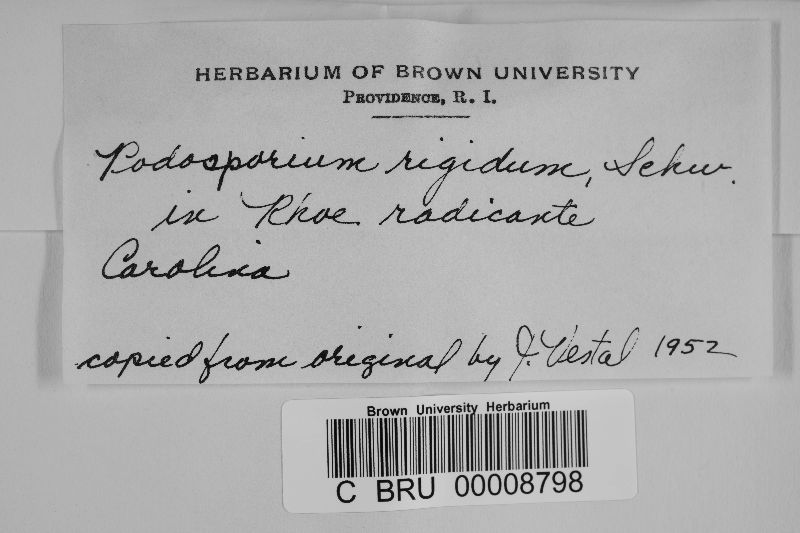 HERBARIUM OF BROWN UNIVERSITY
PROVIDENCE, R. I.
Podosporium rigidum, Schw.
in Rhoe radicante
Carolina
copied from original by J. Vestal 1952
Brown University Herbarium
C BRU 00008798